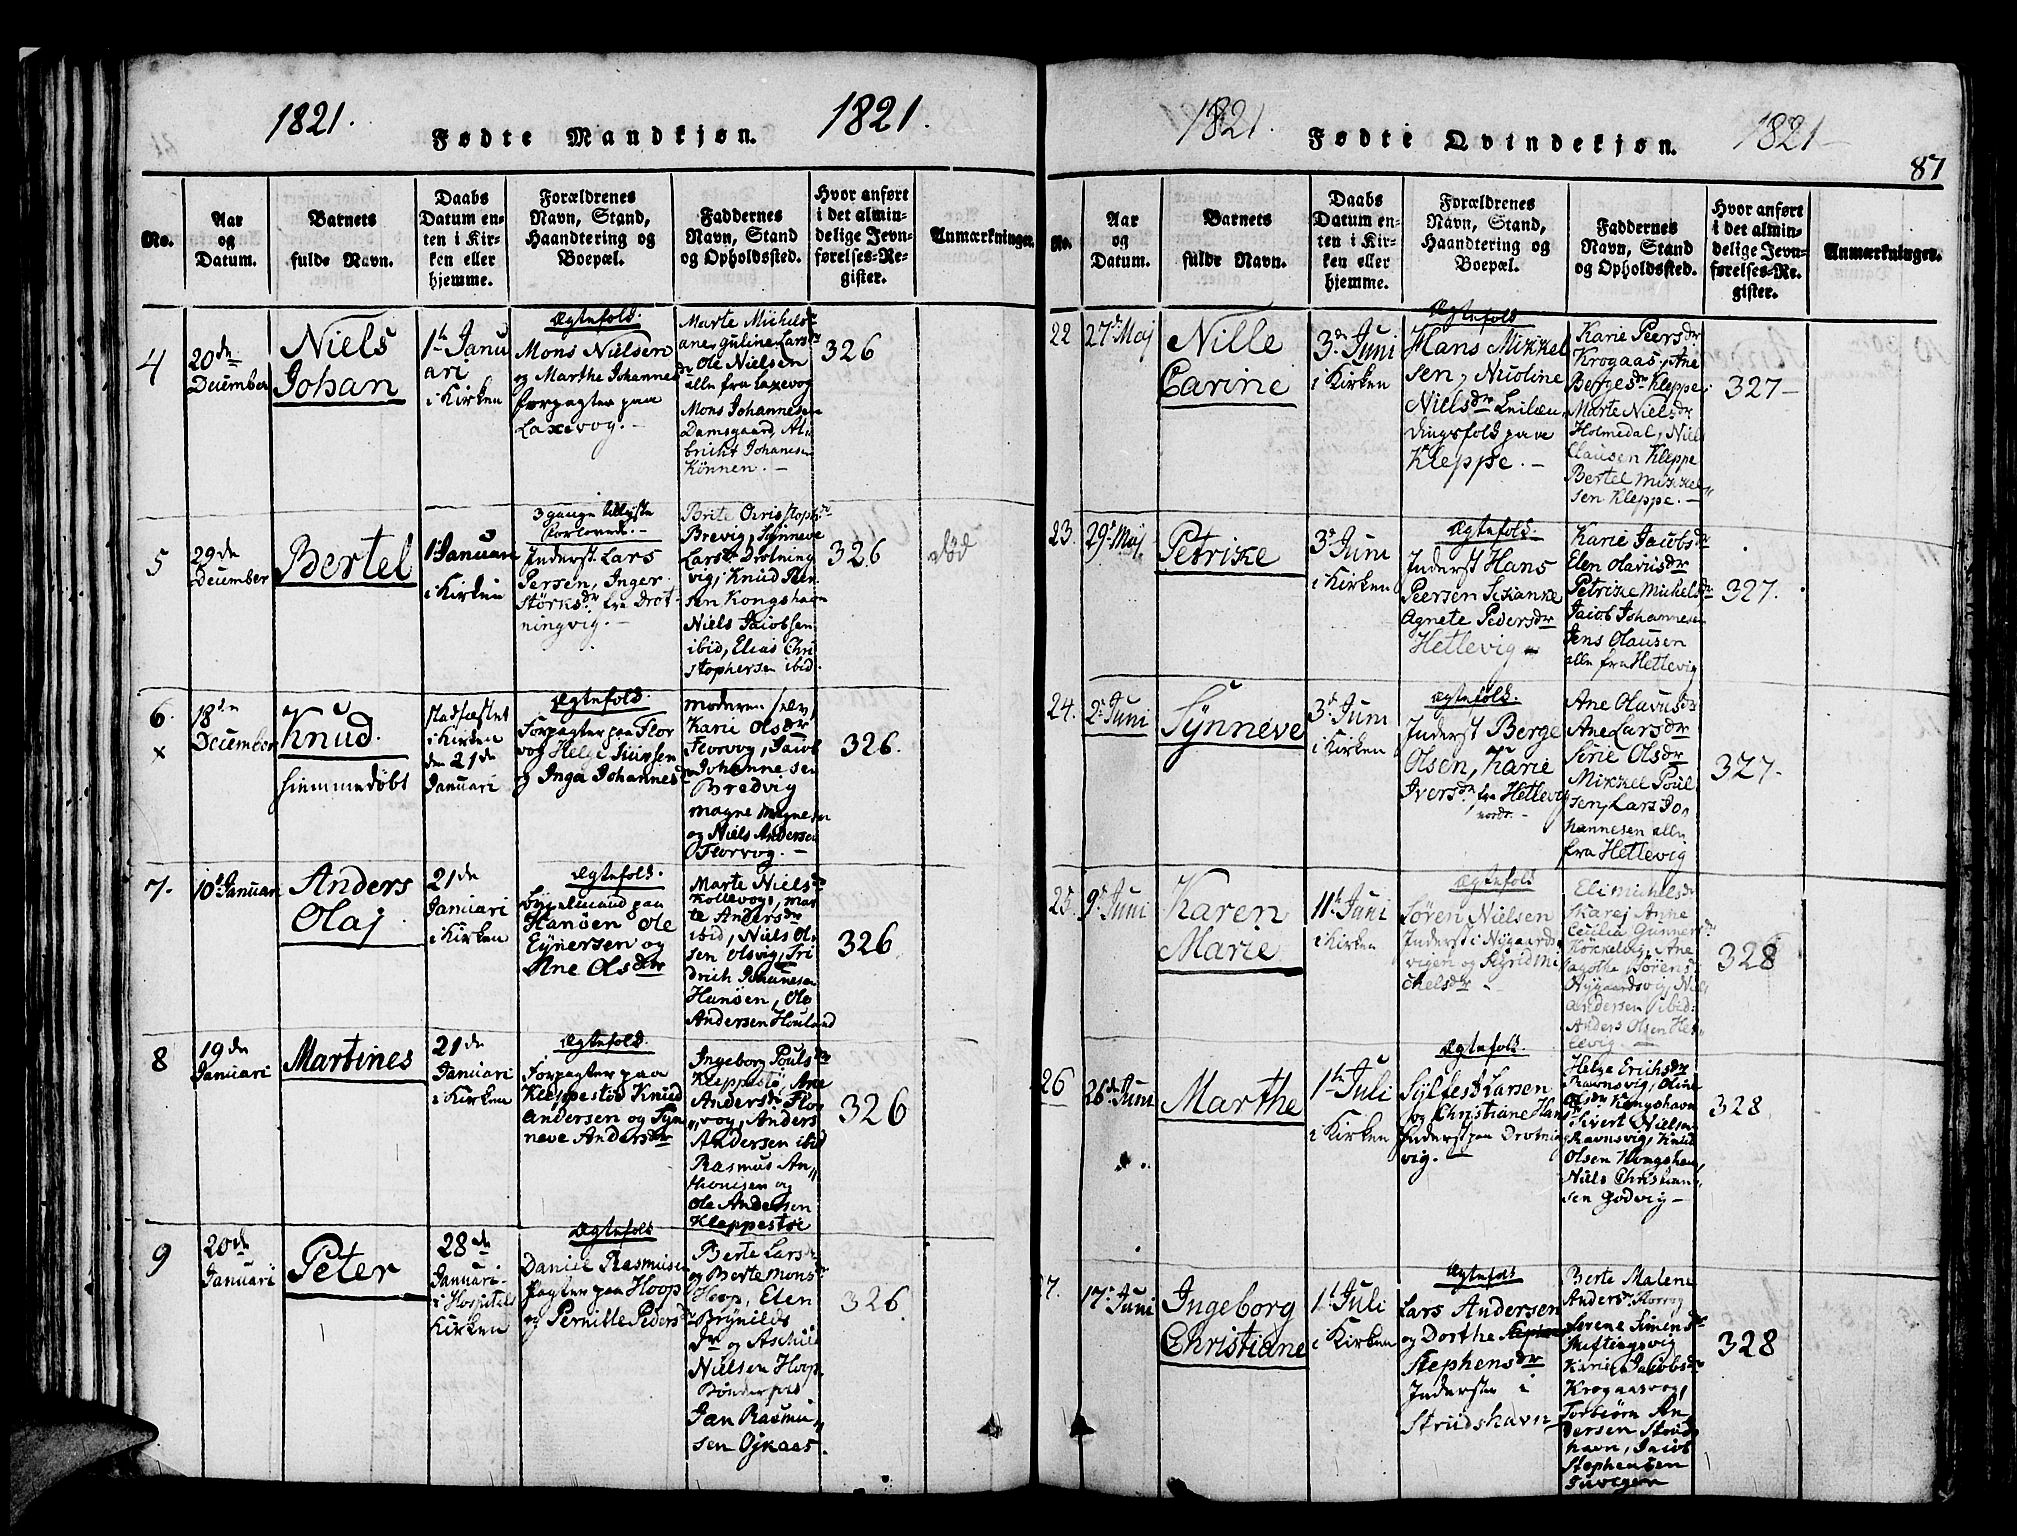 1821.
Fødte Mandkjøn.
1821.
No.
Aar
og
Datum.
Barnets
fulde Navn.
Daabs
Datum en-
ten i Kir-
ken eller
hjemme.
Forældrenes
Navn, Stand,
Haandtering og
Boepæl.
Faddernes
Navn, Stand
og Opholdssted.
Hvor anført
i det almin-
delige Jevn-
førelses-Re-
gister.
Anmærkninger.
4
20de
December
Niels
Johan
1te Janu
ari
i Kirken
Ægtefolk
Mons Nielsen
og Marthe Johannes
dr
forpagter paa
Laxevog.
Marte Michels
Larsdr
Ole Nielsen
alle fra Laxevog
Mons Johannesen
Damsgaard, Al-
bricht Johanesen
Kønnen.
326
5
29de
December
Bertel
1 Januari
i Kirken
3 gange tillyste
Forlovede.
Inderst Lars
Persen, Inger
Størksdr fra Drot-
ningvig.
Brite Christophdr
Brevig, Synneve
Larsdr Drotning
vig, Knud Peer-
sen Kongshavn
Niels Jacobsen
ibid, Elias Chri
stophersen ibid.
326
død
6.
x
18de
December
Knud.
hiemmedøbt
stadfæstet
i Kirken
den 21de
Januari
Ægtefolk.
Forpagter paa Flor
vog Helge
og Inga Johannesdr
moderen selv,
Karie Olsdr
Florvog, Jacob
Johannesen
Bredvig
Magne Magnesen
og Niels Andersen
Florvog.
326.
7.
10d Januari
Anders
Olaj
21de
Januari
i Kirken
Ægtefolk.
paa
Hanøen Ole
Eynersen og
Ane Olsdr
Marte Nielsdr
Kollevog, Mar
te Andersdr
ibid, Niels Ol-
sen Olsvig, Fri
drich Johannesen
Hanøen, Ole
Andersen Houland
326.
8
19de
Januari
Martines
21de
Januari
i Kirken
Ægtefolk.
Forpagter paa
Kleppestøe Knud
Andersen og Syn
neve Andersdr
Ingeborg Poulsdr
Kleppestø, Ane
Andersdr Flor
vog, Anders
Andersen ibid
Rasmus An
thonisen og
Ole Andersen
Kleppestøe
326
9
20de
Januari
Peter
28de
Januari
i Hospitals
Kirken
Ægtefolk
Daniel Rasmusen
Pagter paa Hoop
og Pernille Pedersdr
Berte Larsdr
og Berte Monsdr
Hoop, Elen
Brynilds
dr og Aschild
Nielsen Hoop
Jan Rasmu
sen Øjkaas.
326
1821.
Fødte Qvindekjøn.
1821
87
No.
Aar
og
Datum.
Barnets
fulde Navn.
Daabs
Datum en-
ten i Kir-
ken eller
hjemme.
Forældrenes
Navn, Stand,
Haandtering og
Boepæl.
Faddernes
Navn, Stand
og Opholdssted.
Hvor anført
i det almin-
delige Jevn-
førelses-Re-
gister.
Anmærkninger.
22
27d Maj
Nille
Carine
3d Juni
i Kirken
Ægtefolk
Hans Mikkel
sen, Nicoline
Nielsdr Leilæn
dingsfolk paa
Kleppe.
Karie Peersdr
Krogaas, Ane
Bergesdr Kleppe
Marte Nielsdr
Holmedal, Niels
Clausen Kleppe
Bertel Mikkel
sen Kleppe.
327
23.
29d Maj
Petrike
3d Juni
i Kirken
Ægtefolk.
Inderst Hans
Peersen Skanke
Agnete Pedersdr
Hetlevig
Karie Jacobsdr
Elen Olausdr
Petrike Michelsdr
Jacob Johannesen
Jens Olausen
alle fra Hetlevig
327.
24.
2d Juni
Synneve
3d Juni
i Kirken
Ægtefolk.
Inderst Berge
Olsen, Karie
Iversdr fra Hetlevig
nordr.
Ane Olausdr
Ane Larsdr
Sirie Olsdr
Mikkel Poul
sen, Lars Jo
hannesen alle
fra Hetlevig
327.
25.
9d Juni
Karen
Marie
11t Juni
i Kirken
Ægtefolk
Søren Nielsen
Inderst i Nygaards
vigen og Sigrid Mi
chelsdr
Eli Michelsdr
Skarej Anne
Cecilia Gunnersdr
Ane
Agathe Sørensdr
Nygaardsvig, Niels
Andersen ibid:
Anders Olsen Het
levig.
328
26
26de Juni
Marthe
1te Juli
i Kirken
Ægtefolk.
Sylfest Larsen
og Christiane Hans
dr
Inderst paa Drotning
vig.
Helge Erichsdr
Ravnsvig, Oline
Olsdr Kongshavn
Sivert Nielsen
Ravnsvig, Knud
Olsen Kongshavn
Niels Christian
sen Godvig
328
7.
17d Juni
Ingeborg
Christiane
1t Juli
i Kirken
Ægtefolk
Lars Andersen
og Dorthe
Stephensdr
Inderster i
Strudshavn
Berte Malene
Andersdr
Serene Simensdr
Skiftingsvig
Karie Jacobsdr
Krogaasvog,
Torbiørn An
dersen Struds
havn, Jacob
Stephensen
328